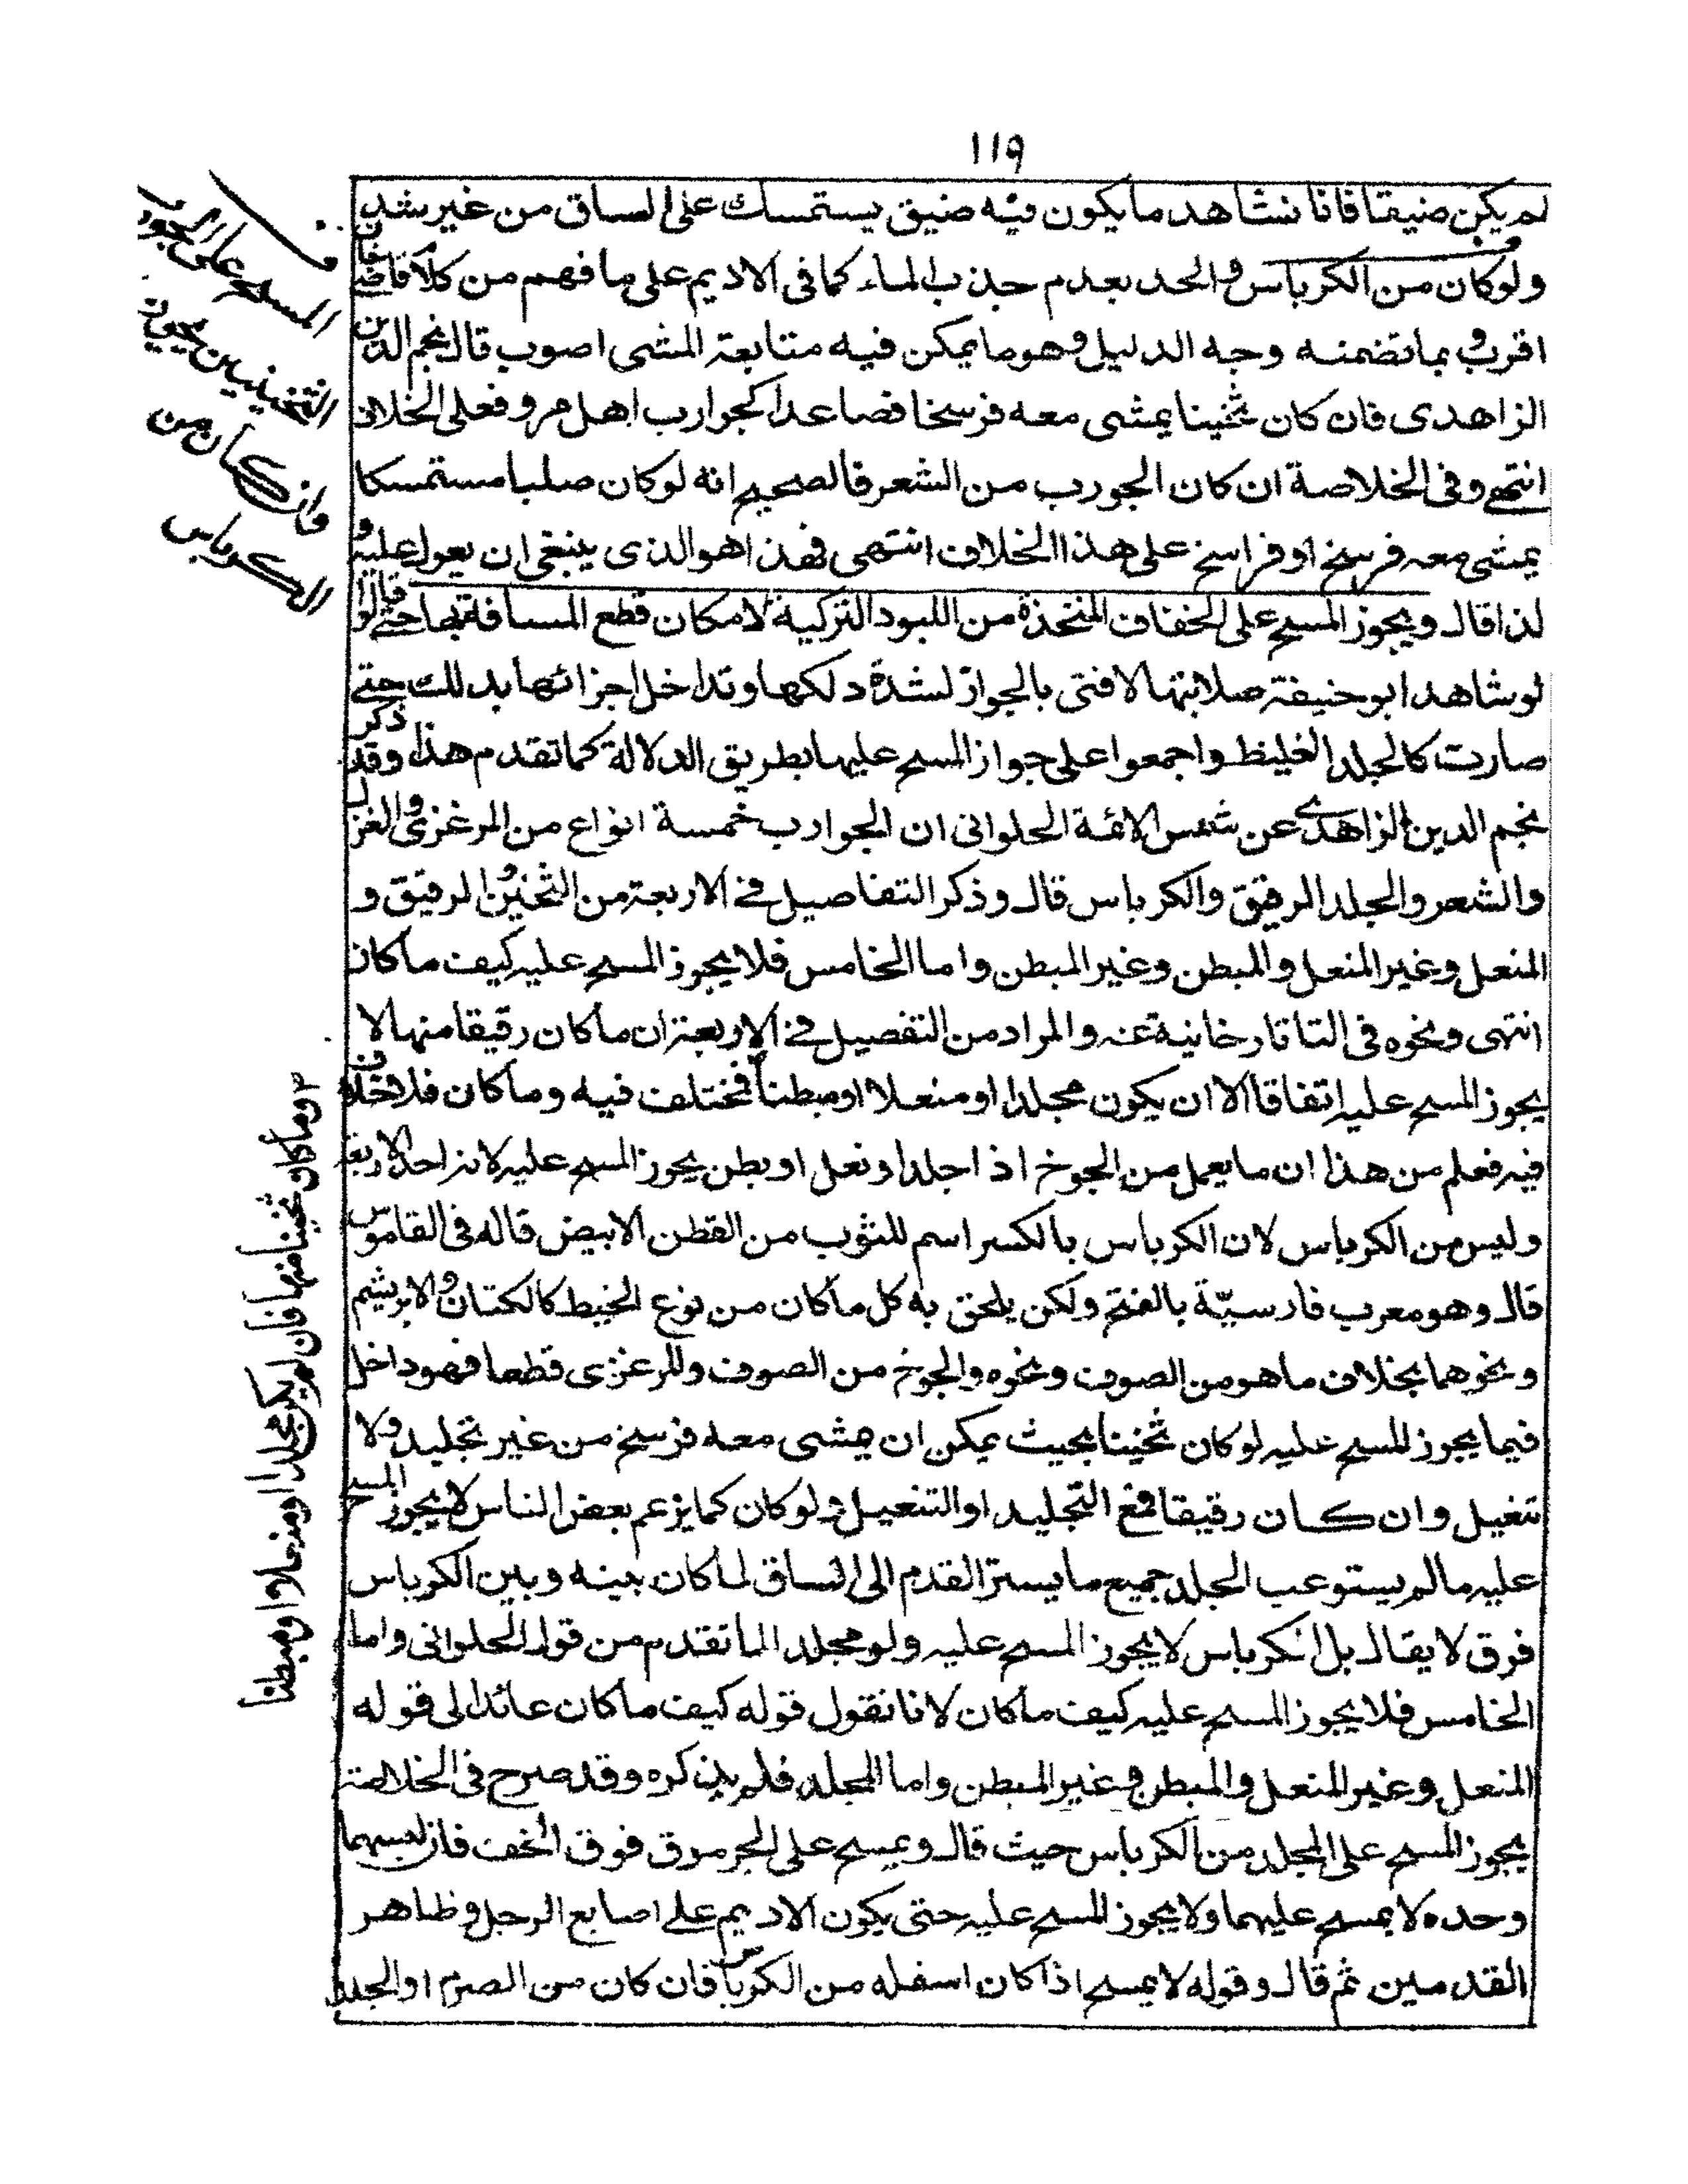 ١١٩
لم يكن ضيقا فانا نشاهد ما يكون فيه ضيق يستمسك على الساق من غير شد
ولو كان من الكرباس والحد بعدم جذب الماء كما فى الاديم على ما فهم من كلام قاضيخان
اقرب وبما تضمنه وجه الدليل وهو ما يمكن فيه متابعة المشى اصوب قال نجم الدين
الزاهدى فان كان ثخينا يمشى معه فرسخا فصاعدا كجوارب اهل مرو فعلى الخلاف
انتهى وفى الخلاصة ان كان الجورب من الشعر فالصحيح انه لو كان صلبا مستمسكا
يمشى معه فرسخ او فراسخ على هذا الخلاف انتهى فهذا هو الذى ينبغى ان يعول عليه و
لذا قال ويجوز المسح على الخفاف المتخذة من اللبود التركية لامكان قطع المسافة بها حتى قالوا
لو شاهد ابو حنيفة صلابتها لافتى بالجواز لشدة دلكها وتداخل اجزائها بذلك حتى
صارت كالجلد الغليظ واجمعوا على جواز المسح عليها بطريق الدلالة كما تقدم هذا وقد ذكر
نجم الدين الزاهدى عن شمس الائمة الحلوانى ان الجوارب خمسة انواع من المرغزى والغزل
والشعر والجلد الرقيق والكرباس قال وذكر التفاصيل فى الاربعة من الثخين والرقيق و
المنعل وغير المنعل والمبطن وغير المبطن واما الخامس فلا يجوز المسح عليه كيف ما كان
انتهى ونحوه فى التاتارخانية عنه والمراد من التفصيل فى الاربعة ان ما كان رقيقا منها لا
يجوز المسح عليه اتفاقا الا ان يكون مجلدا او منعلا او مبطنا فمختلف فيه وما كان فلا خلاف
فيه فعلم من هذا ان ما يعمل من الجوخ اذا جلد او نعل او بطن يجوز المسح عليه لانه احد الاربعة
وليس من الكرباس لان الكرباس بالكسر اسم للثوب من القطن الابيض قاله فى القاموس
قال وهو معرب فارسيّة بالفتح ولكن يلحق به كل ما كان من نوع الخيط كالكتان والابريشم
ونحوهما بخلاف ما هو من الصوف ونحوه والجوخ من الصوف والمرغزى قطعا فهو داخل
فيما يجوز المسح عليه لو كان ثخينا بحيث يمكن ان يمشى معه فرسخ من غير تجليد ولا
تنعيل وان كان رقيقا فمع التجليد او التنعيل ولو كان كما يزعم بعض الناس لا يجوز المسح
عليه ما لم يستوعب الجلد جميع ما يستر القدم الى الساق لما كان بينه وبين الكرباس
فرق لا يقال بل الكرباس لا يجوز المسح عليه ولو مجلدا لما تقدم من قول الحلوانى واما
الخامس فلا يجوز المسح عليه كيف ما كان لانا نقول قوله كيف ما كان عائد الى قوله
المنعل وغير المنعل والمبطن وغير المبطن واما المجلد فلم يذكره وقد صرح فى الخلاصة
يجوز المسح على المجلد من الكرباس حيث قال ويمسح على الجرموق فوق الخف فان لبسهما
وحده لا يمسح عليهما ولا يجوز المسح عليه حتى يكون الاديم على اصابع الرجل وظاهر
القدمين ثم قال وقوله لا يمسح اذا كان اسفله من الكرباس فان كان من الصرم او الجلد
المسح على الجورب
الثخينين يجوز
وان كان من
الكرباس
٣ وما كان ثخينا منها فان لم يكن مجلدا او منعلا او مبطنا